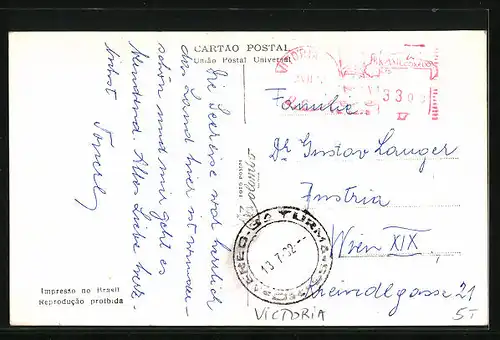 CARTÃO POSTAL
União Postal Universal
Die Seereise war herrlich
das Land hier ist wunder-
schön und mir geht es
blendend. Alles Liebe
VITORIA
3300
Familie
Dr Gustav Langer
Austria
Wien XIX
Kreindlgasse 21
5T
TURMA
13.7.62
VICTORIA
Impresso no Brasil
Reprodução proibida